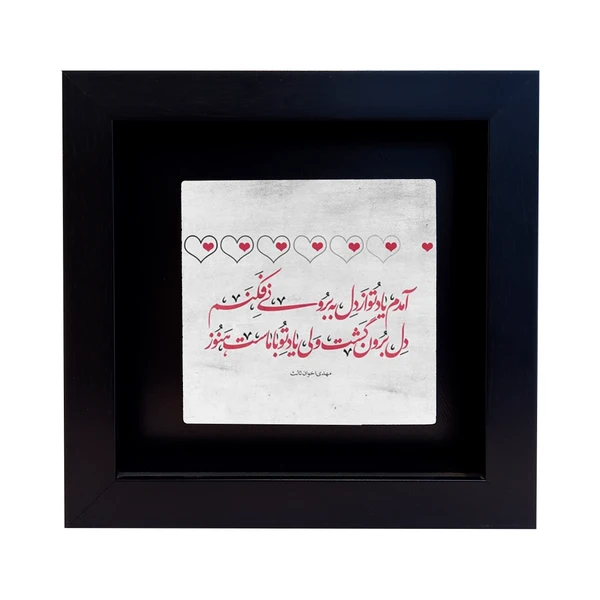 آمدم یاد تو از دل به برونی فکنم
دل برون گشت ولی یاد تو با ماست هنوز
مهدی اخوان ثالث